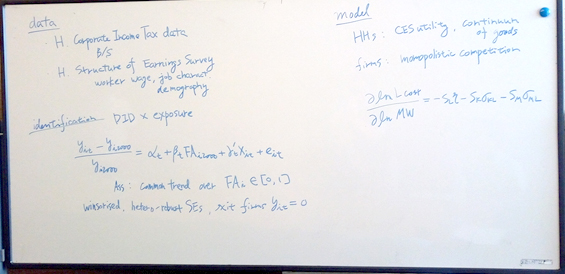 data
H Corporate Income Tax data
B/S
H. Structure of Earnings Survey
worker wage, job charact
demography
identification DID × exposure
(y_it − y_i2000) / y_i2000 = α_t + β_t FA_i2000 + γ'_t X_it + e_it
Ass: common trend over FA_i ∈ [0,1]
winsorised, hetero-robust SEs, exit firms y_it = 0
model
HHs: CES utility, continuum
of goods
firms: monopolistic competition
∂ln L cost / ∂ln MW = −S_L η − S_K σ_KL − S_M σ_ML